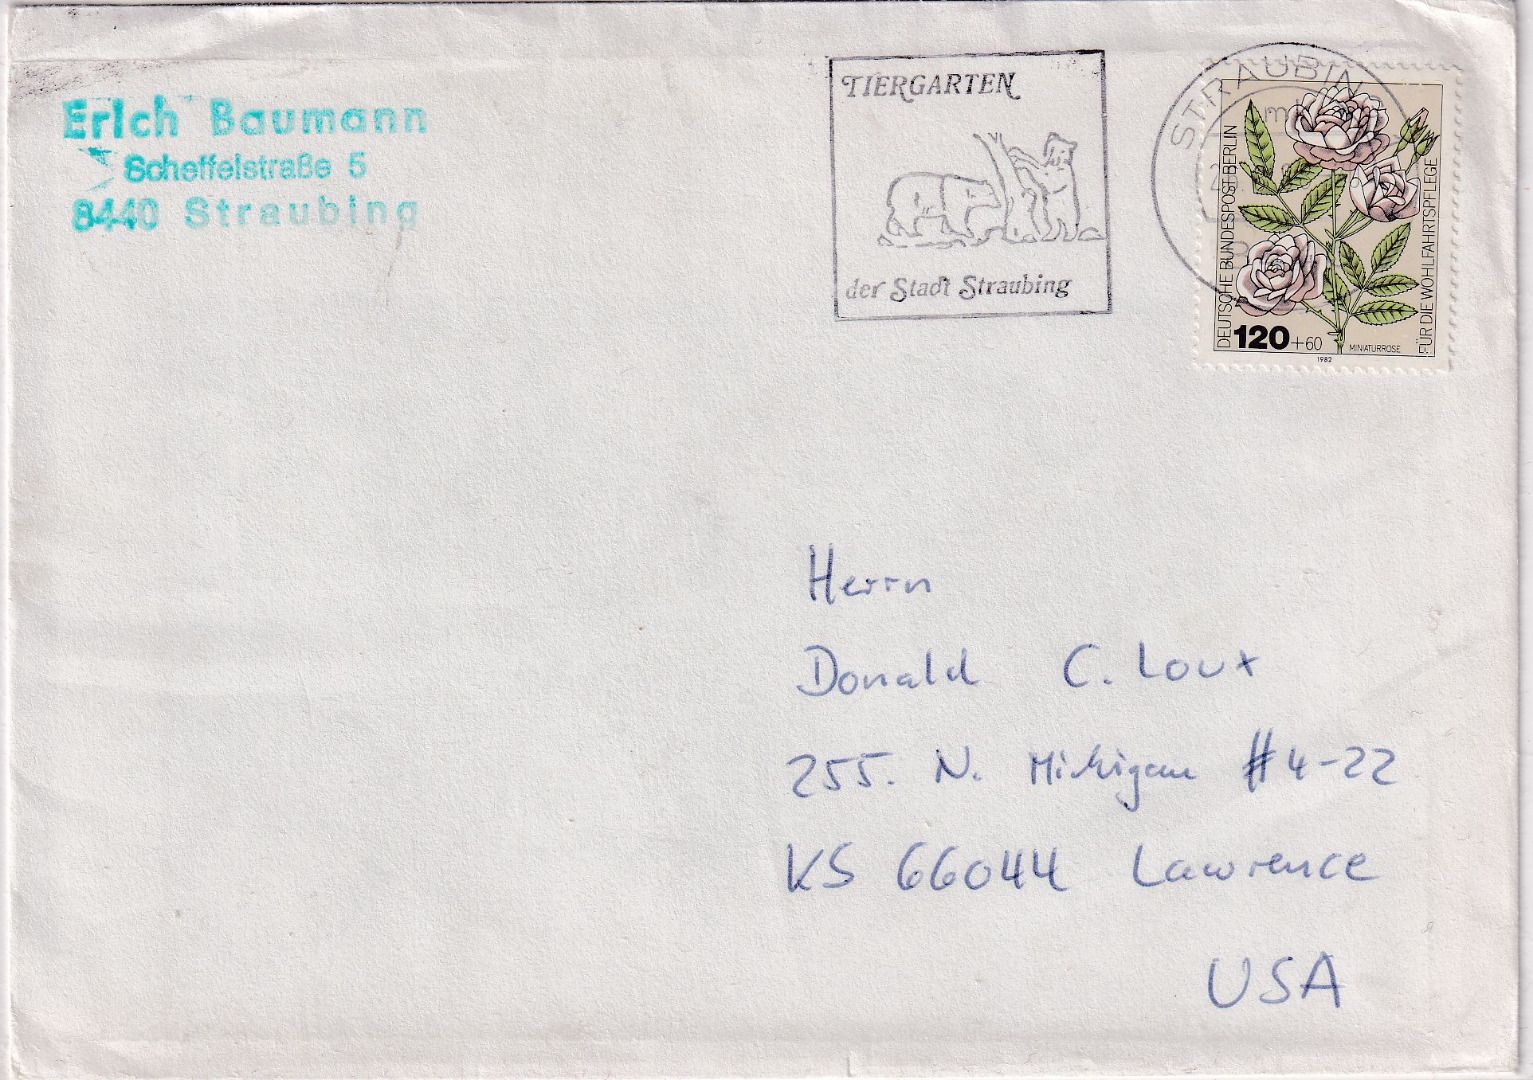 Erich Baumann
Scheffelstraße 5
8440 Straubing
TIERGARTEN
der Stadt Straubing
STRAUBING
DEUTSCHE BUNDESPOST BERLIN
FÜR DIE WOHLFAHRTSPFLEGE
120+60
MINIATURROSE
1982
Herrn
Donald C. Loux
255. N. Michigan #4-22
KS 66044 Lawrence
USA